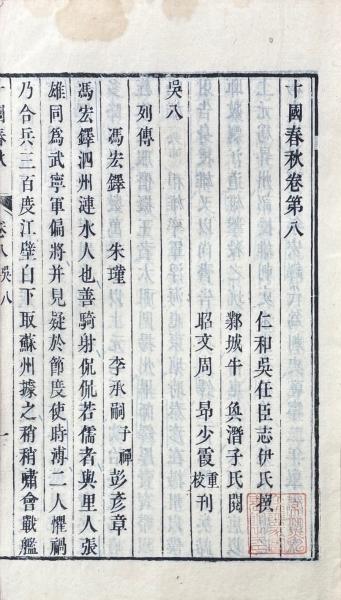 十國春秋卷第八
仁和吳任臣志伊氏撰
鄴城牛奐潛子氏閱
昭文周昻少霞重校刊
吳八
列傳
馮宏鐸 朱瑾 李承嗣子禪 彭彥章
馮宏鐸泗州漣水人也善騎射侃侃若儒者與里人張
雄同為武寧軍偏將并見疑於節度使時溥二人懼禍
乃合兵三百度江壁白下取蘇州據之稍稍嘯會戰艦
十國春秋 卷八吳八 一